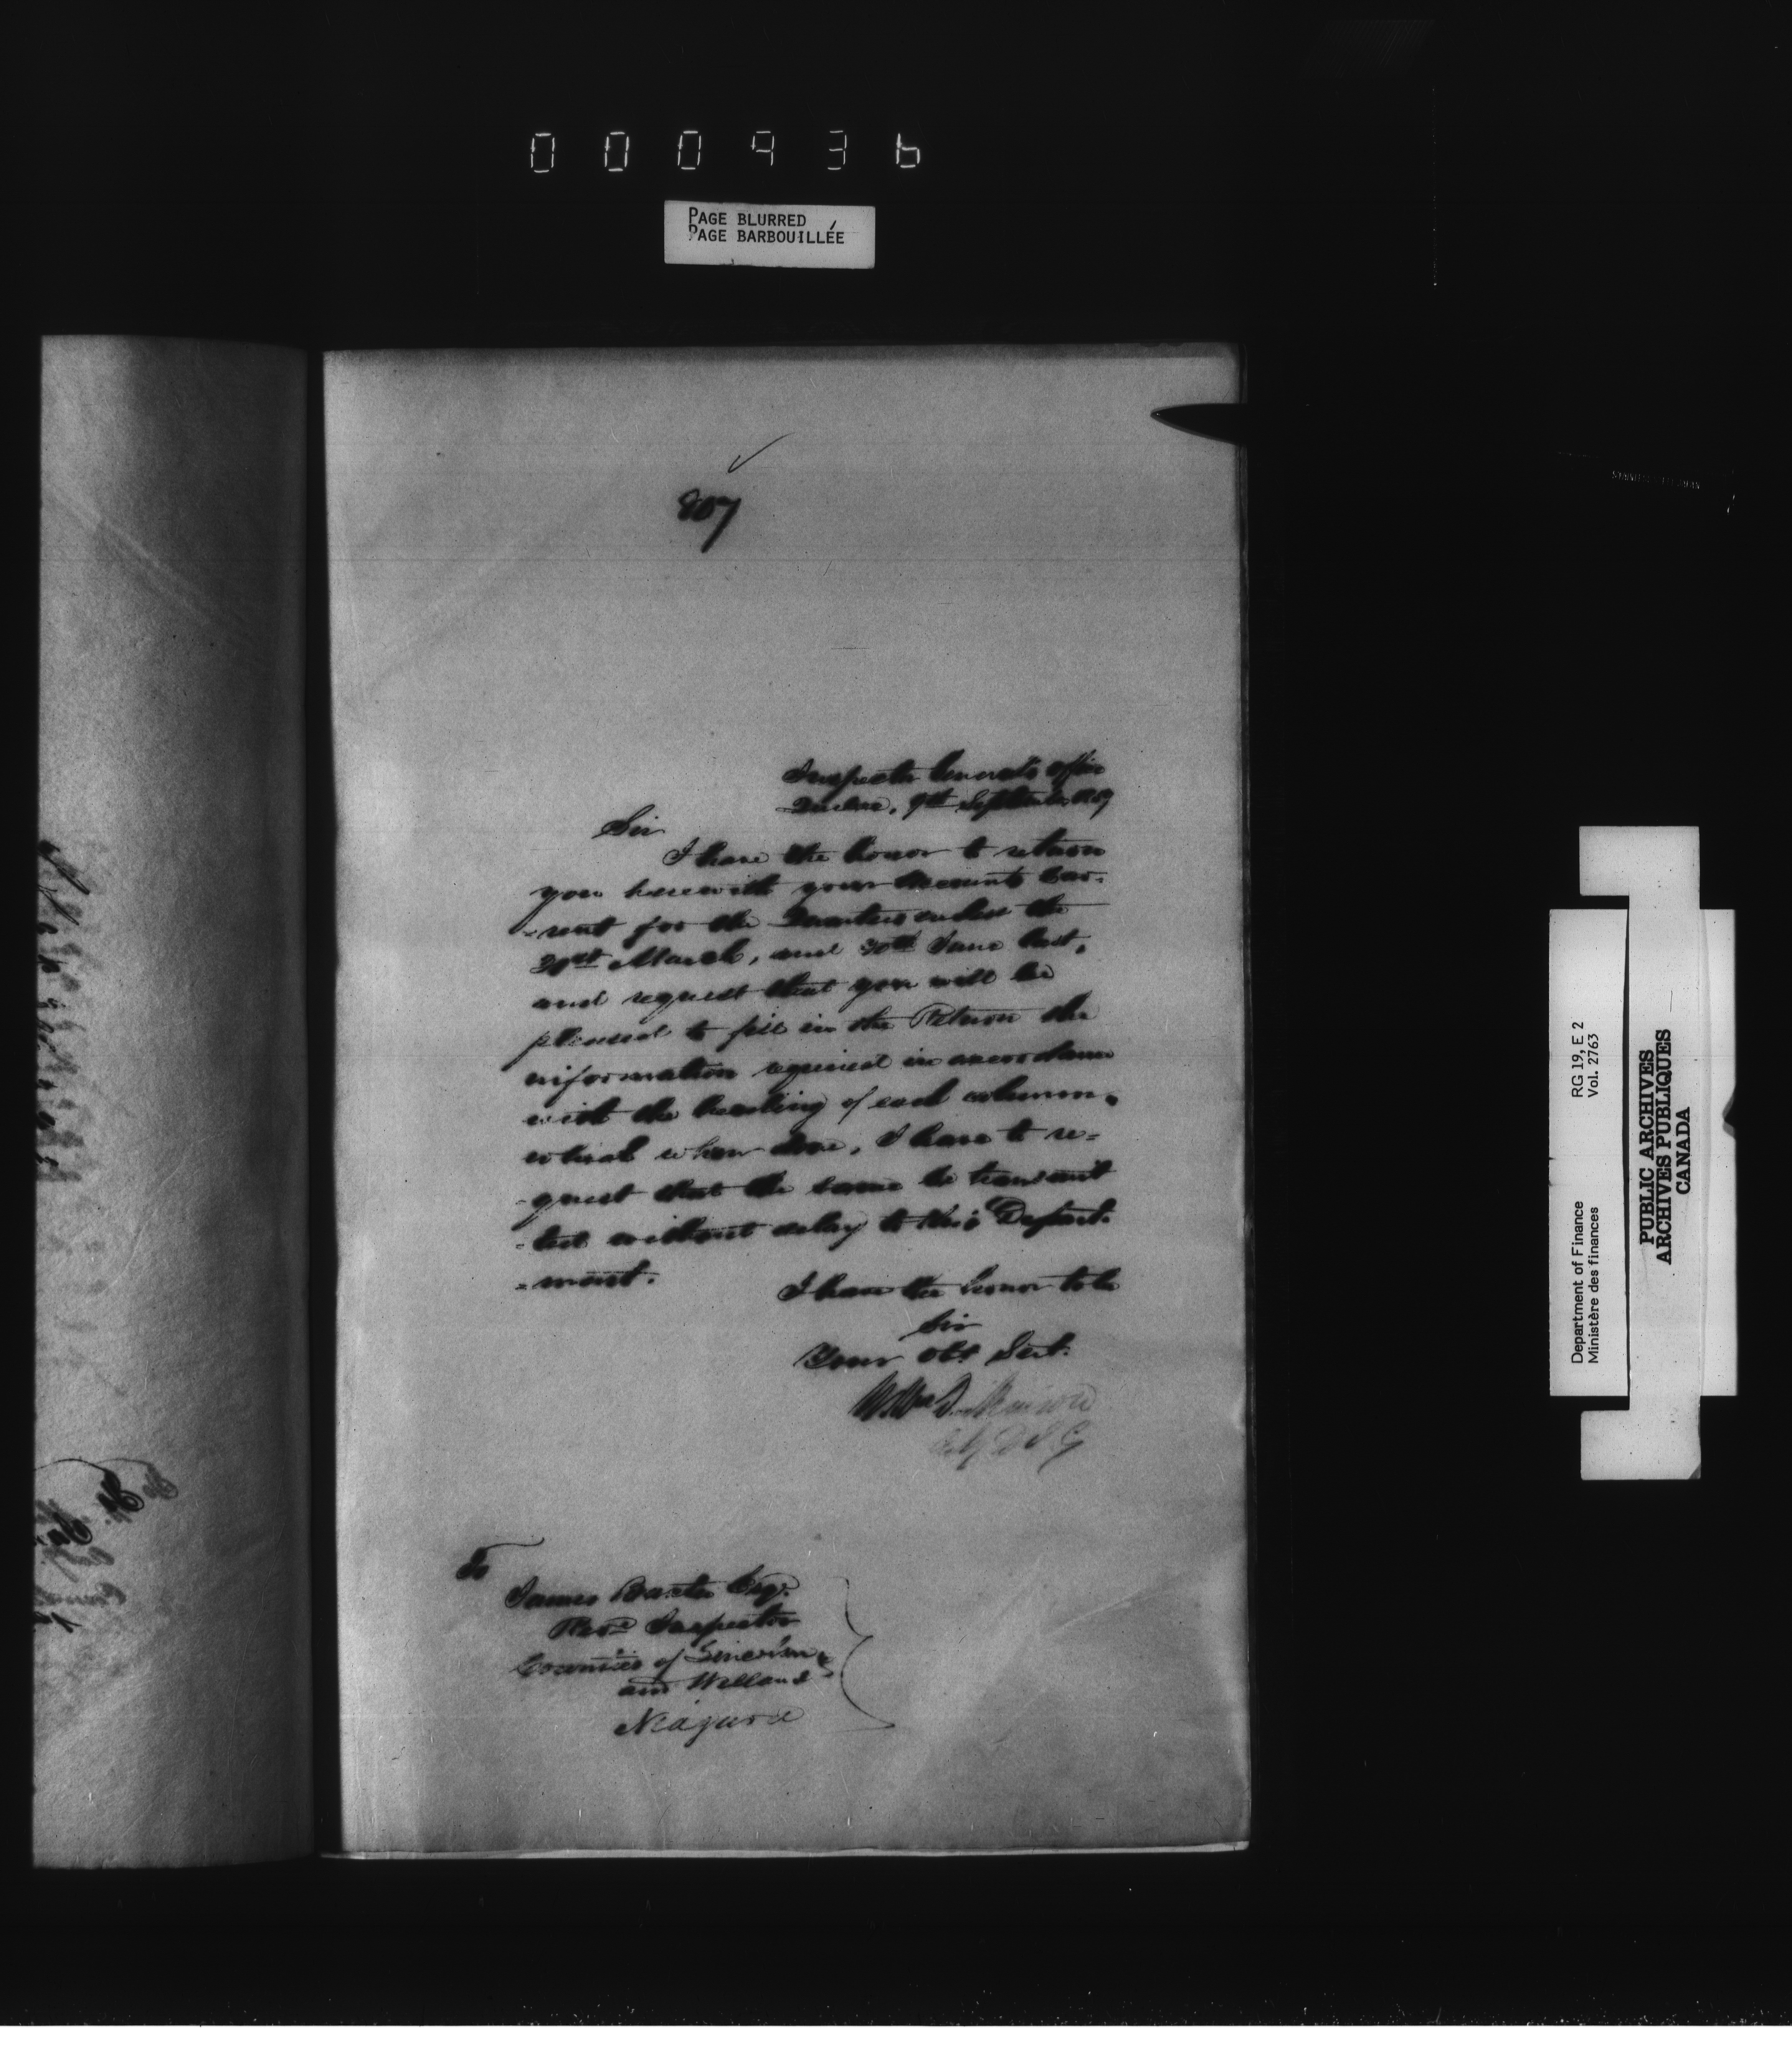 000936
PAGE BLURRED
PAGE BARBOUILLÉE
807
Inspector General's Office
Quebec, 9th September
Sir
I have the honor to return
you herewith your Accounts Cur-
-rent for the Quarters ended the
31st March, and 30th June last,
and request that you will be
pleased to fill in the Return the
information required in accordance
with the heading of each column,
which when done, I have to re-
-quest that the same be transmit
-ted without delay to this Depart-
-ment.
I have the honor to be
Sir
Your Obt Servt.
Wm Dickinson
D I G
To
James Baxter Esqr.
Reve Inspector
Counties of Lincoln
and Welland
Niagara
Department of Finance
Ministère des finances
RG 19, E 2
Vol. 2763
PUBLIC ARCHIVES
ARCHIVES PUBLIQUES
CANADA